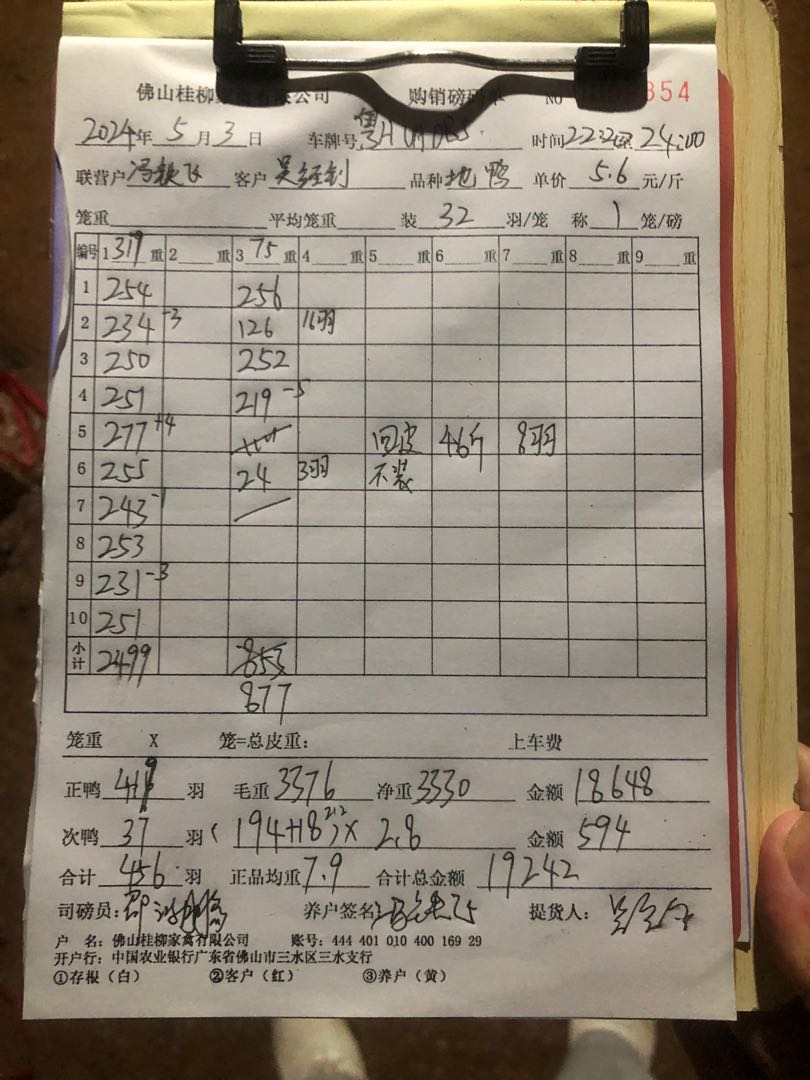 佛山桂柳家禽有限公司 购销磅码单 NO 354
2024年 5月3日 车牌号 粤H 时间 22:32至24:00
联营户 冯 飞 客户 吴 品种 地鸭 单价 5.6 元/斤
笼重 平均笼重 装 32 羽/笼 称 1 笼/磅
编号 1 319 重 2 重 3 75 重 4 重 5 重 6 重 7 重 8 重 9 重
1 254 256
2 234 -3 126 16羽
3 250 252
4 251 219 -5
5 277 +4 回皮 46斤 8羽
6 255 24 3羽 不装
7 243 -1
8 253
9 231 -3
10 251
小计 2499 853
877
笼重 X 笼=总皮重： 上车费
正鸭 419 羽 毛重 3376 净重 3330 金额 18648
次鸭 37 羽 (194+18) 212 × 2.8 金额 594
合计 456 羽 正品均重 7.9 合计总金额 19242
司磅员： 养户签名 提货人：
户 名：佛山桂柳家禽有限公司 账号：444 401 010 400 169 29
开户行：中国农业银行广东省佛山市三水区三水支行
①存根（白） ②客户（红） ③养户（黄）